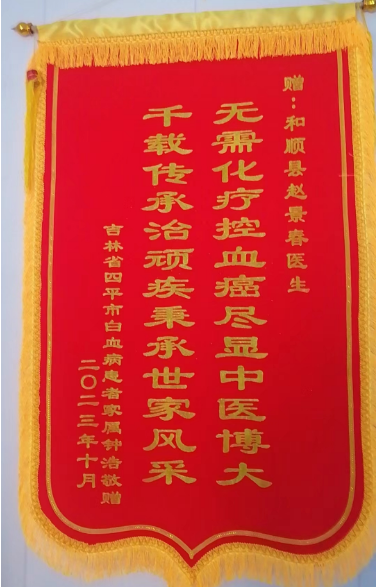 赠：和顺县赵景春医生
无需化疗控血癌尽显中医博大
千载传承治顽疾秉承世家风采
吉林省四平市白血病患者家属钟浩敬赠
二〇二三年十月